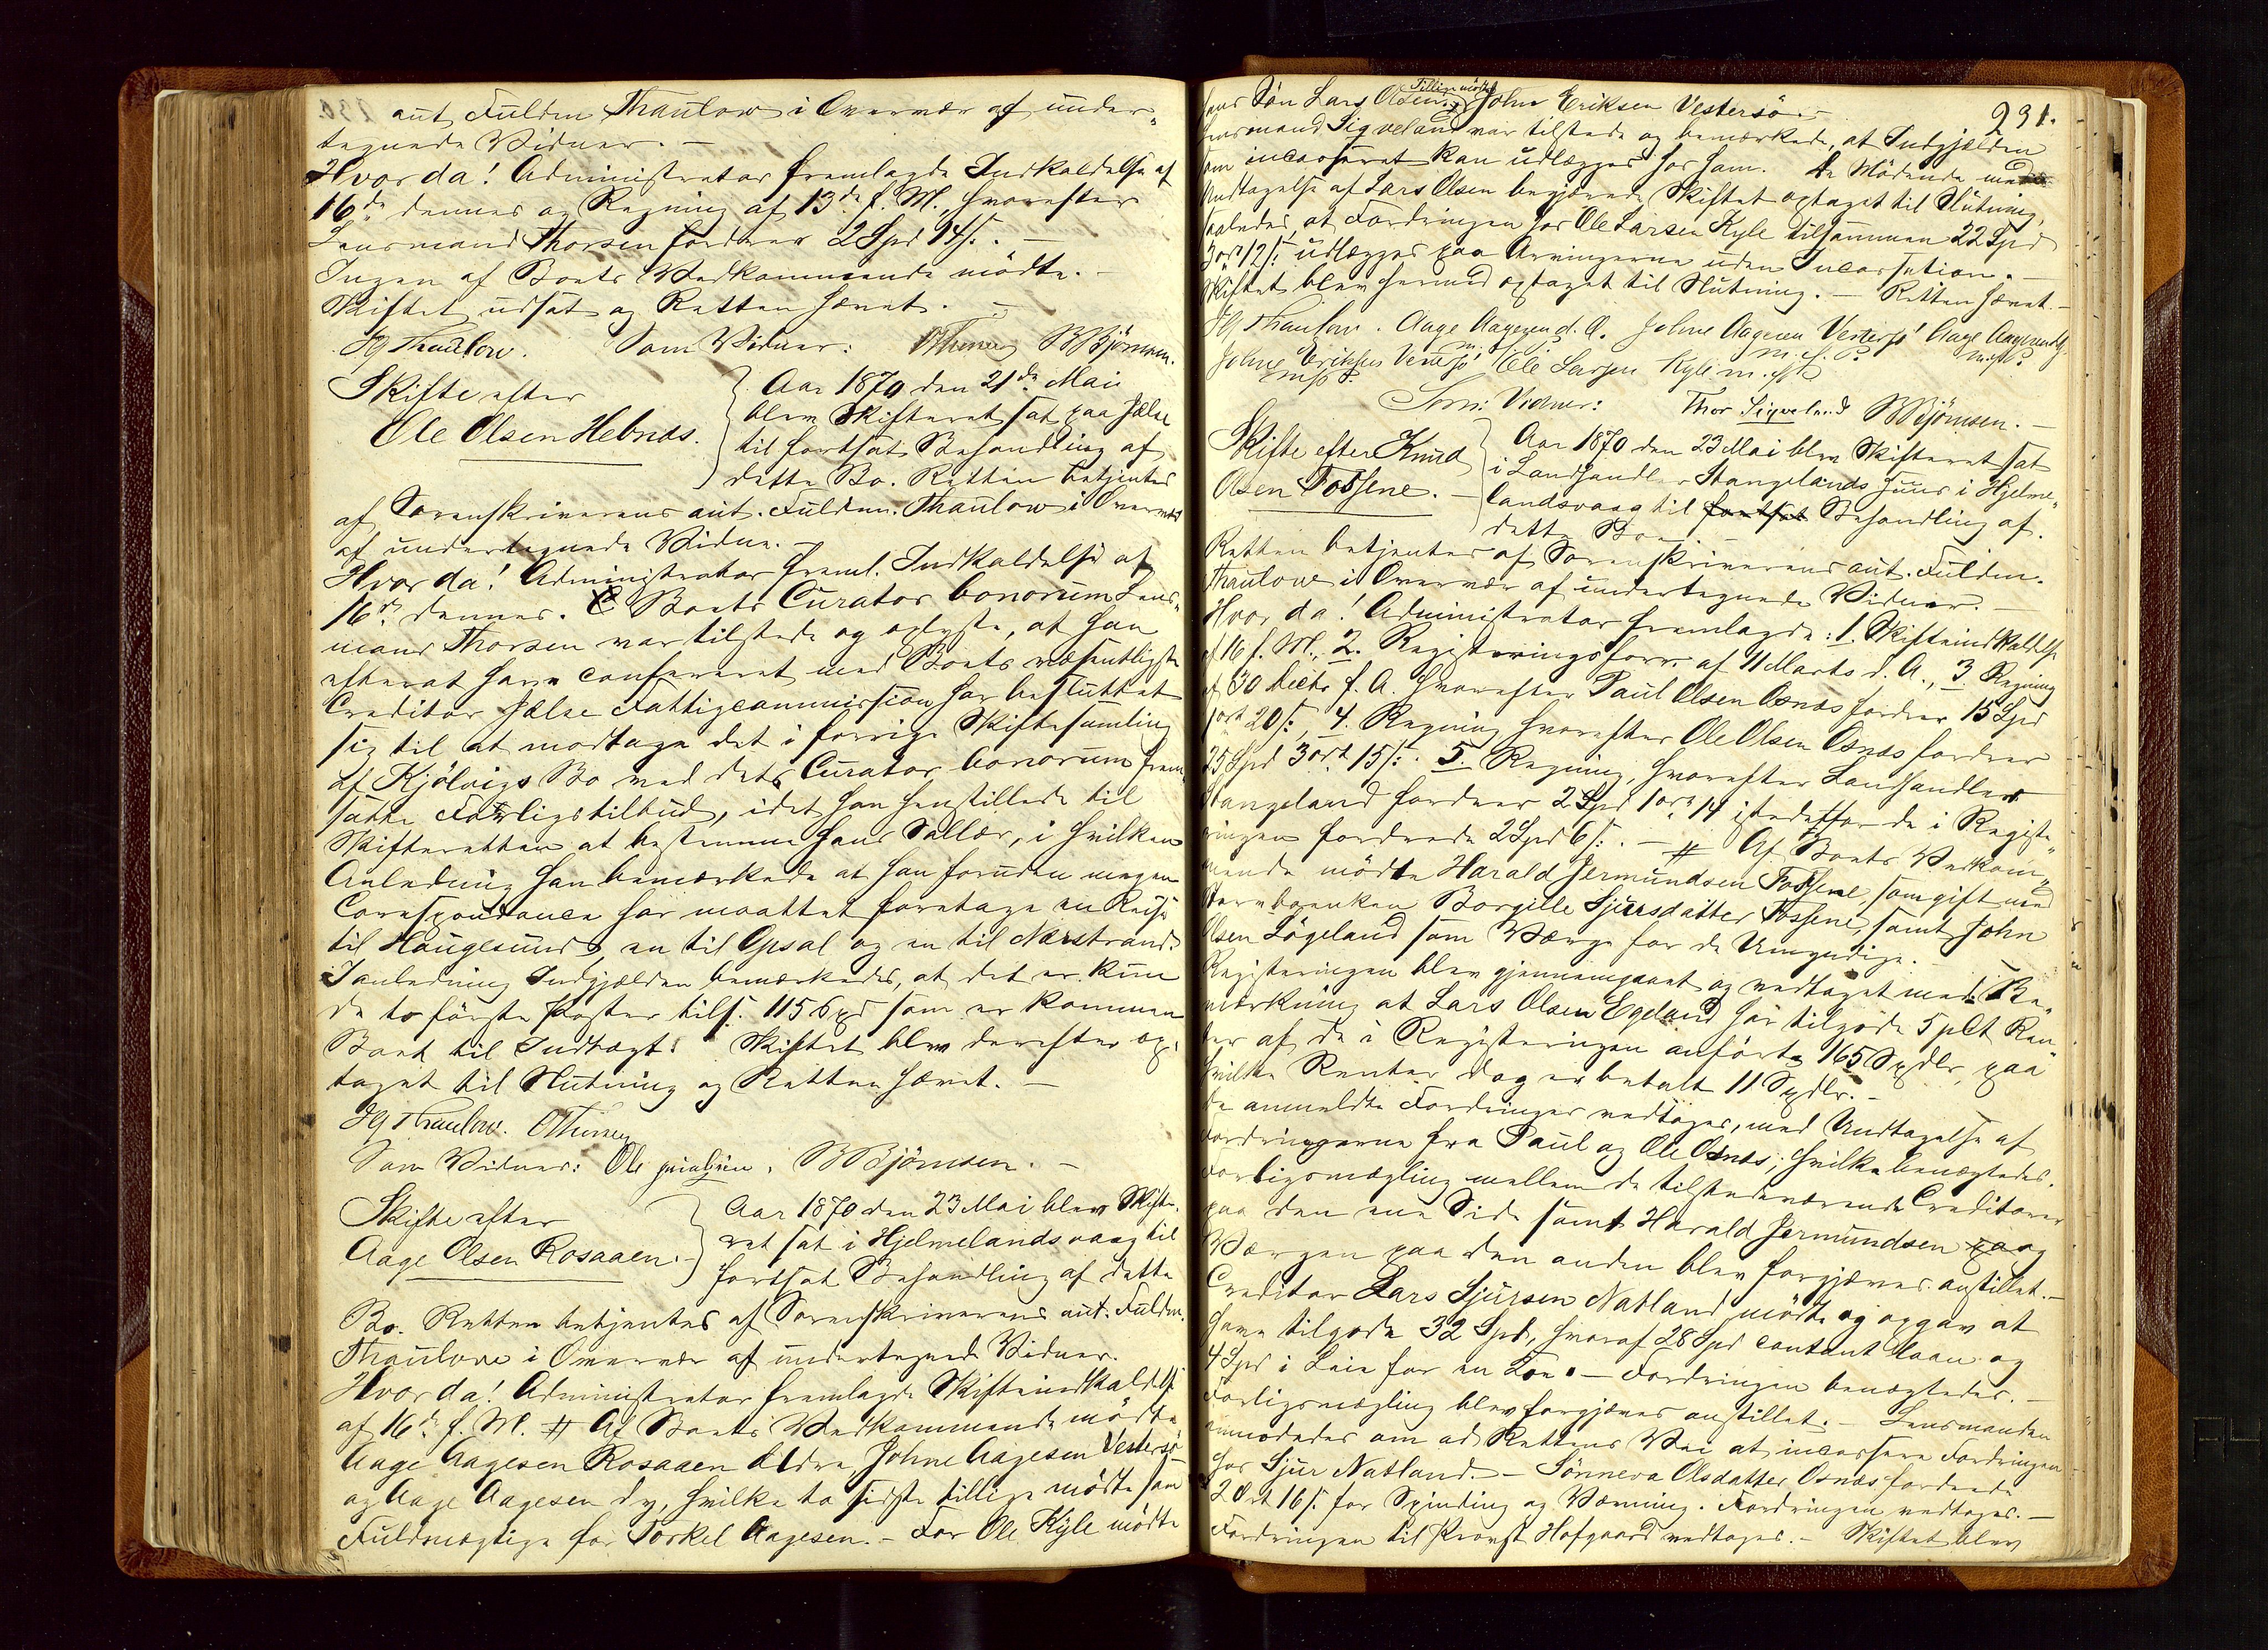 aut. Fuldm. Thaulow i Overvær af under-
tegnede Vidner. —
Hvor da! Administrator fremlagde Indkaldelse af
16de dennes og Regning af 13de f. M., hvorefter
Lensmand Thorsen fordrer 2 Spd 14 s. —
Ingen af Boets Vedkommende mödte. —
Skiftet udsat og Retten hævet. —
Thaulow. Som Vidner: BBjörnsen.
Skifte efter
Ole Olsen Hebnes.
Aar 1870 den 21de Mai
blev Skifteret sat paa Jelse
til fortsat Behandling af
dette Bo. Retten betjentes
af Sorenskriverens aut. Fuldm. Thaulow i Overvær
af undertegnede Vidne. —
Hvor da! Administrator freml. Indkaldelse af
16de dennes. Boets Curator bonorum Lens-
mand Thorsen var tilstede og oplyste, at han
efterat have confereret med Boets væsentligste
Creditor Jelse Fattigcommission har besluttet
sig til at modtage det i forrige Skiftesamling
af Kjölvigs Bo ved dets Curator bonorum frem-
satte Forligstilbud, idet han henstillede til
Skifteretten at bestemme hans Sallær, i hvilken
Anledning han bemærkede at han foruden megen
Correspondance har maattet foretage en Reise
til Haugesund, en til Opsal og en til Nærstrand.
I anledning Indgjælden bemærkedes, at det er kun
de to förste Poster tils. 115 Spd som er kommen
Boet til Indtægt. Skiftet blev derefter op-
taget til Slutning og Retten hævet. —
Thaulow.
Som Vidner: Ole BBjörnsen. —
Skifte efter
Aage Olsen Rosaaen.
Aar 1870 den 23 Mai blev Skifte-
ret sat i Hjelmelandsvaag til
fortsat Behandling af dette
Bo. Retten betjentes af Sorenskriverens aut. Fuldm.
Thaulow i Overvær af undertegnede Vidner.
Hvor da! Administrator fremlagde Skifteindkaldelse
af 16de f. M. # Af Boets Vedkommende mödte
Aage Aagesen Rosaaen ældre, Johne Aagesen Vestersö
og Aage Aagesen d y, hvilke to sidste tillige mödte som
Fuldmægtige for Torkel Aagesen. — For Ole Kyle mödte
231.
hans Sön Lars Olsen. Tillige mödte John Eriksen Vestersö. —
Lensmand Sigveland var tilstede og bemærkede, at Indgjælden
som incasseret kan udlægges hos ham. De Mödende med
Undtagelse af Lars Olsen begjærede Skiftet optaget til Slutning,
saaledes, at Fordringen hos Ole Larsen Kyle tilsammen 22 Spd
3 ort 12 s. udlægges paa Arvingerne uden Incassation. —
Skiftet blev hermed optaget til Slutning. — Retten hævet. —
Thaulow. Aage Aagesen d. Æ. Johne Aagesen Vestersö Aage Aagesen d y.
Johne Eriksen Vestersö Ole Larsen Kyle m. p. P.
Som Vidner: Thor Sigveland BBjörnsen. —
Skifte efter Knud
Olsen Fossene. —
Aar 1870 den 23 Mai blev Skifteret sat
i Landhandler Stangelands Huus i Hjelme-
landsvaag til fortsat Behandling af
dette Bo. —
Retten betjentes af Sorenskriverens aut. Fuldm.
Thaulow i Overvær af undertegnede Vidner. —
Hvor da! Administrator fremlagde: 1. Skifteindkaldelse
af 16 f. M., 2. Registreringsforr. af 11 Marts d. A., 3. Regning
af 30 Decbr f. A. hvorefter Paul Olsen Osnes fordrer 15 Spd
1 ort 20 s., 4. Regning hvorefter Ole Olsen Osnes fordrer
25 Spd 3 ort 15 s. 5. Regning, hvorefter Landhandler
Stangeland fordrer 2 Spd 1 ort 14 istedetfor de i Registe-
ringen fordrede 2 Spd 6 s. — # Af Boets Vedkom-
mende mödte Harald Jermundsen Fossene, som gift med
Stervboenken Borgille Sjursdatter Fossene, samt John
Olsen Lögeland som Værge for de Umyndige. —
Registeringen blev gjennemgaaet og vedtaget med Be-
mærkning at Lars Olsen Egeland har tilgode 5 pCt Ren-
ter af de i Registeringen anförte 165 Spdlr, paa
hvilke Renter dog er betalt 11 Spdlr. —
De anmeldte Fordringer vedtoges, med Undtagelse af
Fordringerne fra Paul og Ole Osnes, hvilke benægtedes.
Forligsmægling mellem de tilstedeværende Creditorer
paa den ene Side samt Harald Jermundsen og
Værgen paa den anden blev forgjæves anstillet. —
Creditor Lars Sjursen Natland mödte og opgav at
have tilgode 32 Spd, hvoraf 28 Spd contant Laan og
4 Spd i Leie for en Koe. — Fordringen benægtedes. —
Forligsmægling blev forgjæves anstillet. — Lensmanden
anmodedes om ad Rettens Vei at incassere Fordringen
hos Sjur Natland. — Sönneva Olsdatter Osnes fordrede
2 Ort 16 s. for Spinding og Vævning. Fordringen vedtoges. —
Fordringen til Provst Hofgaard vedtoges. — Skiftet blev